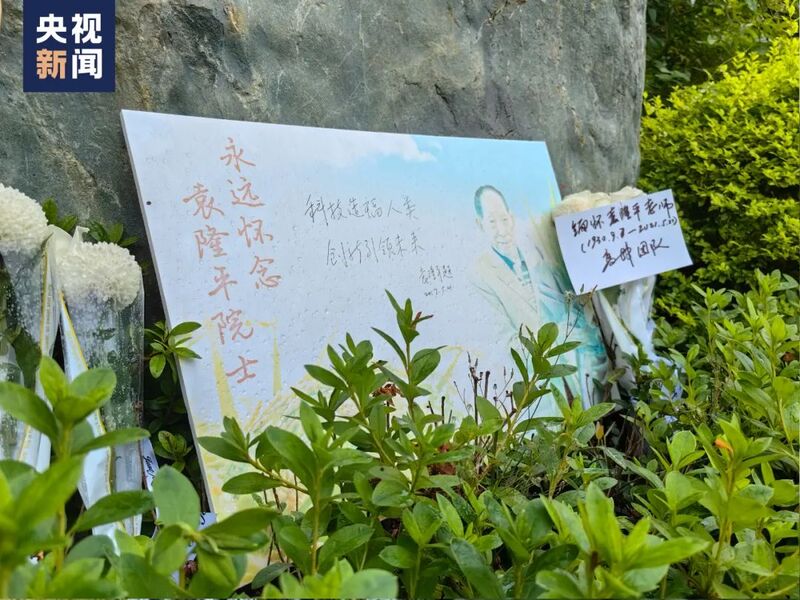 央视
新闻
永远怀念
袁隆平院士
科技造福人类
创新引领未来
袁隆平题
缅怀袁隆平老师
(1930.9.7—2021.5.22)
团队